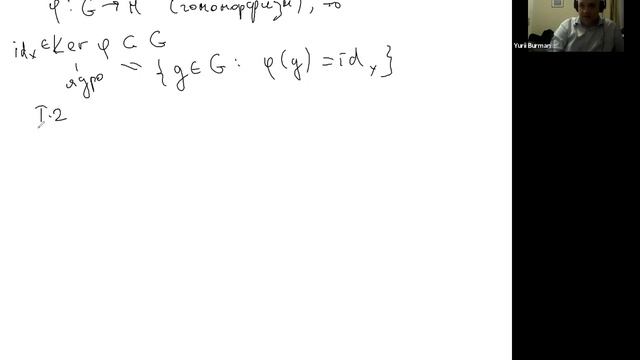 φ : G → H (гомоморфизм), то
id_x ∈ Ker φ ⊂ G
ядро = { g ∈ G : φ(g) = id_Y }
I.2
Yurii Burman